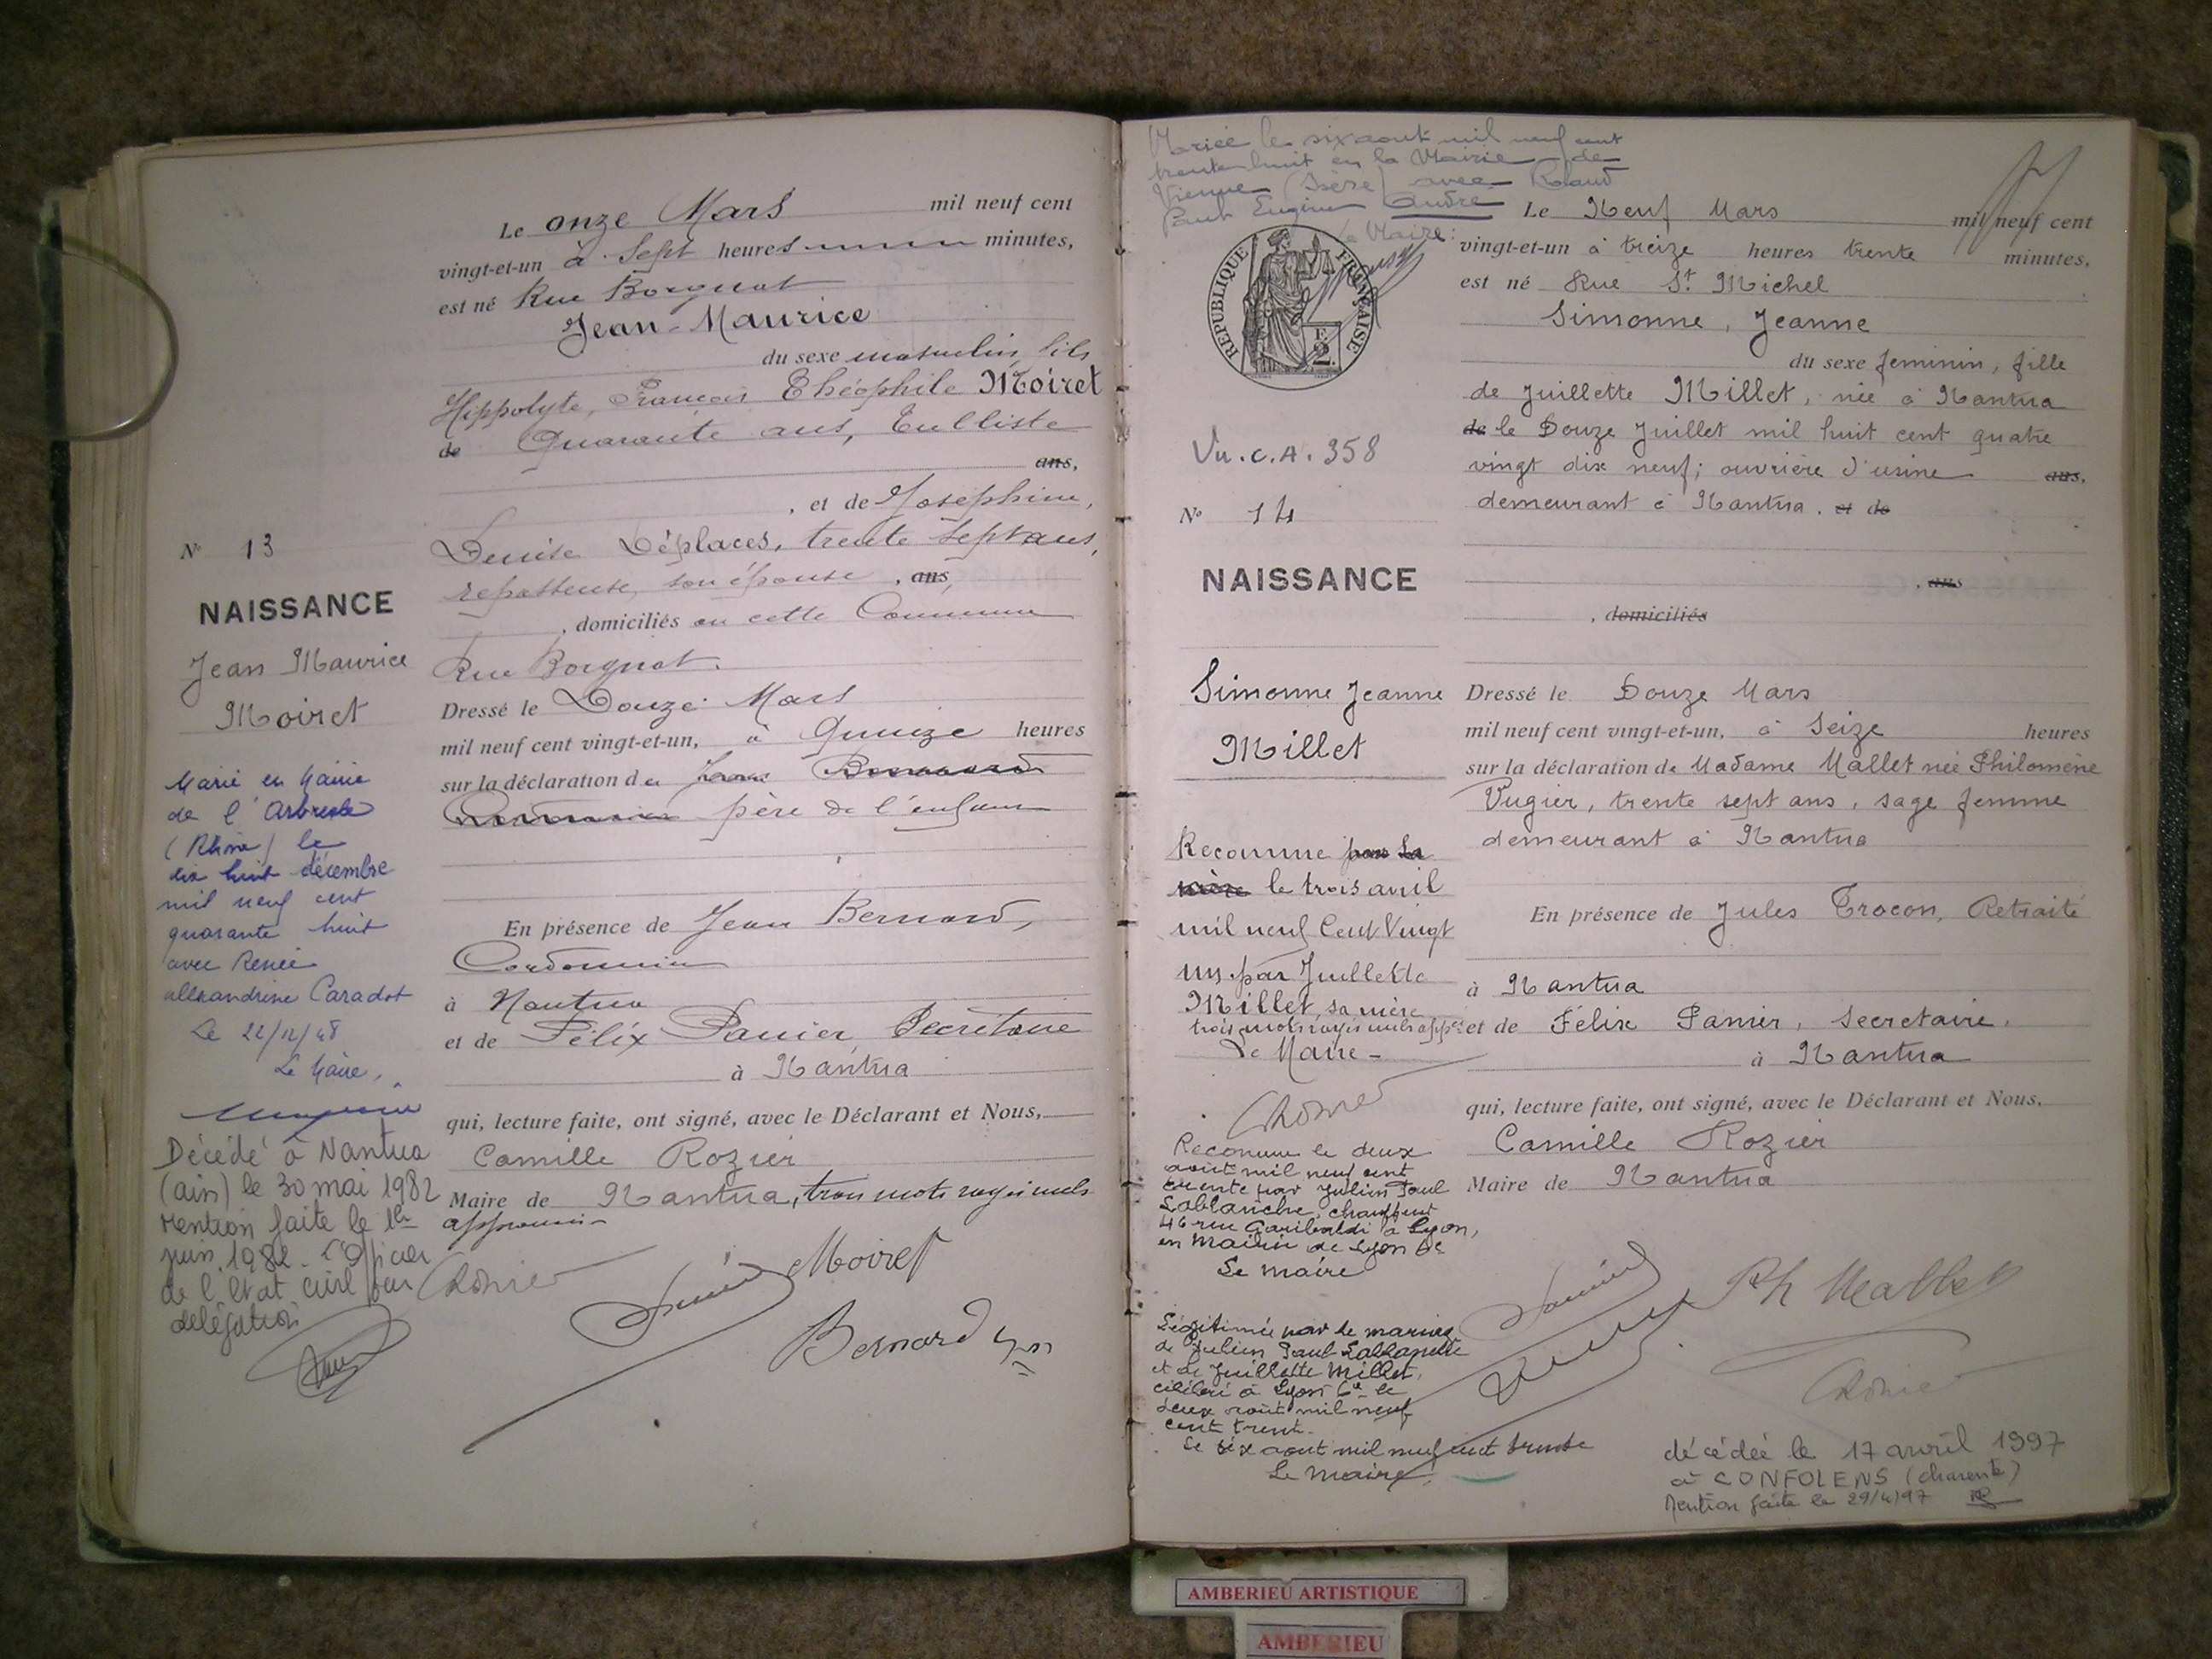 Le onze Mars mil neuf cent
vingt-et-un à Sept heures minutes,
est né Rue Borgnat
Jean-Maurice
du sexe masculin, fils
Hippolyte, François Théophile Moiret
de Quarante ans, Tulliste
ans,
, et de Joséphine,
Denise Déplaces, trente sept ans,
repasseuse, son épouse , ans,
, domiciliés en cette Commune
Rue Borgnat.
Dressé le Douze Mars
mil neuf cent vingt-et-un, à Quinze heures
sur la déclaration du
père de l'enfant
En présence de Jean Bernard,
Cordonnier
à Nantua
et de Félix Panier, Secrétaire
à Nantua
qui, lecture faite, ont signé, avec le Déclarant et Nous,
Camille Rozier
Maire de Nantua, trois mots rayés nuls
approuvés
Moiret
Bernard
N° 13
NAISSANCE
Jean Maurice
Moiret
Marié en Mairie
de l'Arbresle
(Rhône) le
dix huit décembre
mil neuf cent
quarante huit
avec Renée
Alexandrine Caradot
Le 22/12/48
Le Maire,
Décédé à Nantua
(ain) le 30 mai 1982
Mention faite le 1er
juin 1982 - L'Officier
de l'Etat civil par
délégation
Mariée le six aout mil neuf cent
trente huit en la Mairie de
Vienne (Isère) avec Roland
Paul Eugène André
Le Maire:
RÉPUBLIQUE FRANÇAISE
2
Vu. C.A. 358
N° 14
NAISSANCE
Simonne Jeanne
Millet
Reconnue par la
mère le trois avril
mil neuf Cent Vingt
un par Juillette
Millet, sa mère
trois mots rayés nuls appés
Le Maire -
Reconnue le deux
août mil neuf cent
trente par Julien Paul
Lablanche, chauffeur
46 rue Garibaldi à Lyon,
en Mairie de Lyon 6e
Le maire
Légitimée par le mariage
de Julien Paul Lablanche
et de Juillette Millet,
célébré à Lyon 6e le
deux août mil neuf
cent trente.
Le six aout mil neuf cent trente
Le Maire
Le Neuf Mars mil neuf cent
vingt-et-un à treize heures trente minutes,
est né Rue St Michel
Simonne, Jeanne
du sexe feminin, fille
de Juillette Millet, née à Nantua
de le Douze Juillet mil huit cent quatre
vingt dix neuf; ouvrière d'usine ans,
demeurant à Nantua. et de
, ans
, domiciliés
Dressé le Douze Mars
mil neuf cent vingt-et-un, à Seize heures
sur la déclaration de Madame Mallet née Philomène
Vugier, trente sept ans, sage femme
demeurant à Nantua
En présence de Jules Trocon, Retraité
à Nantua
et de Félix Panier, Secretaire.
à Nantua
qui, lecture faite, ont signé, avec le Déclarant et Nous,
Camille Rozier
Maire de Nantua
Ph Mallet
décédée le 17 avril 1997
à CONFOLENS (charente)
Mention faite le 29/4/97
AMBERIEU ARTISTIQUE
AMBERIEU